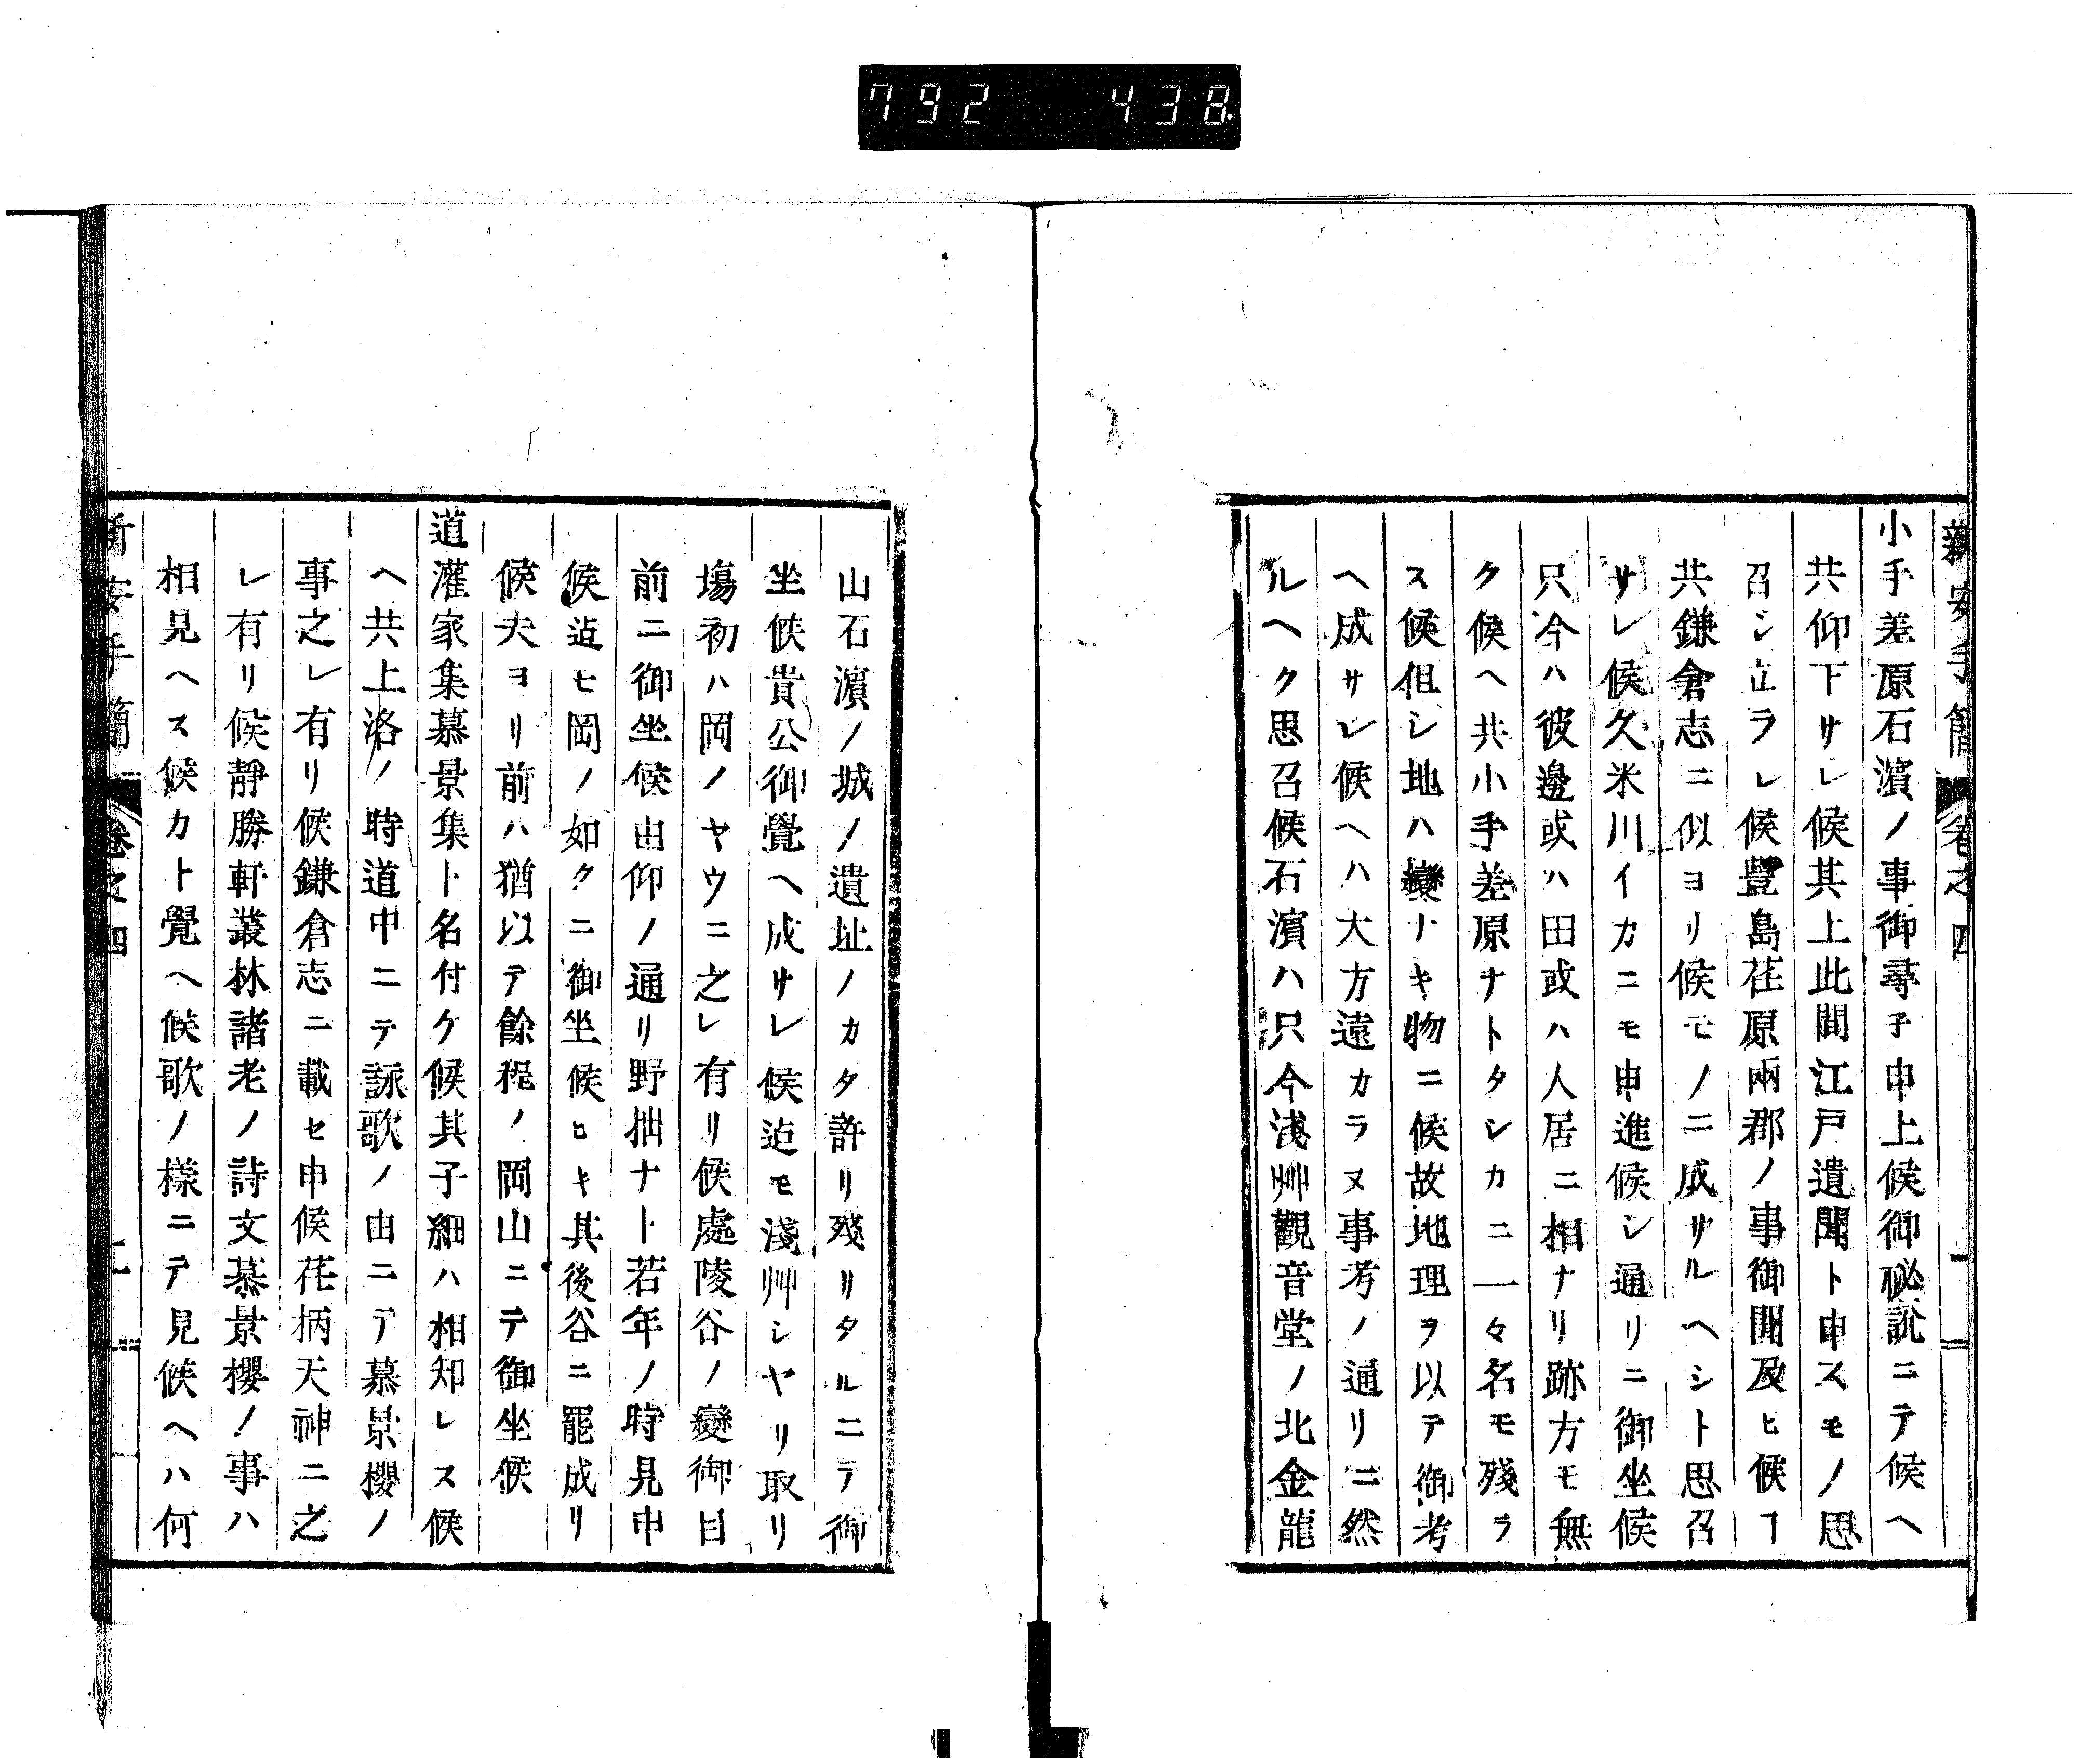 792 438
新安手簡 卷之四 一
小手差原石濵ノ事御尋子申上候御祕説ニテ候ヘ
共仰下サレ候其上此間江戸遺聞ト申スモノ思
召シ立ラレ候豊島荏原兩郡ノ事御聞及ヒ候ヿ
共鎌倉志ニ似ヨリ候モノニ成サルヘシト思召
サレ候久米川イカニモ申進候シ通リニ御坐候
只今ハ彼邊或ハ田或ハ人居ニ相ナリ跡方モ無
ク候ヘ共小手差原ナトタシカニ一々名モ殘ラ
ス候但シ地ハ變ナキ物ニ候故地理ヲ以テ御考
ヘ成サレ候ヘハ大方遠カラヌ事考ノ通リニ然
ルヘク思召候石濵ハ只今淺艸觀音堂ノ北金龍
山石濵ノ城ノ遺址ノカタ許リ殘リタルニテ御
坐候貴公御覺ヘ成サレ候迨モ淺艸シヤリ取リ
塲初ハ岡ノヤウニ之レ有リ候處陵谷ノ變御目
前ニ御坐候由仰ノ通リ野拙ナト若年ノ時見申
候迨モ岡ノ如クニ御坐候ヒキ其後谷ニ罷成リ
候夫ヨリ前ハ猶以テ餘程ノ岡山ニテ御坐候
道灌家集慕景集ト名付ケ候其子細ハ相知レス候
ヘ共上洛ノ時道中ニテ詠歌ノ由ニテ慕景櫻ノ
事之レ有リ候鎌倉志ニ載セ申候荏柄天神ニ之
レ有リ候靜勝軒叢林諸老ノ詩文慕景櫻ノ事ハ
相見ヘス候カト覺ヘ候歌ノ樣ニテ見候ヘハ何
新安手簡 卷之四 二